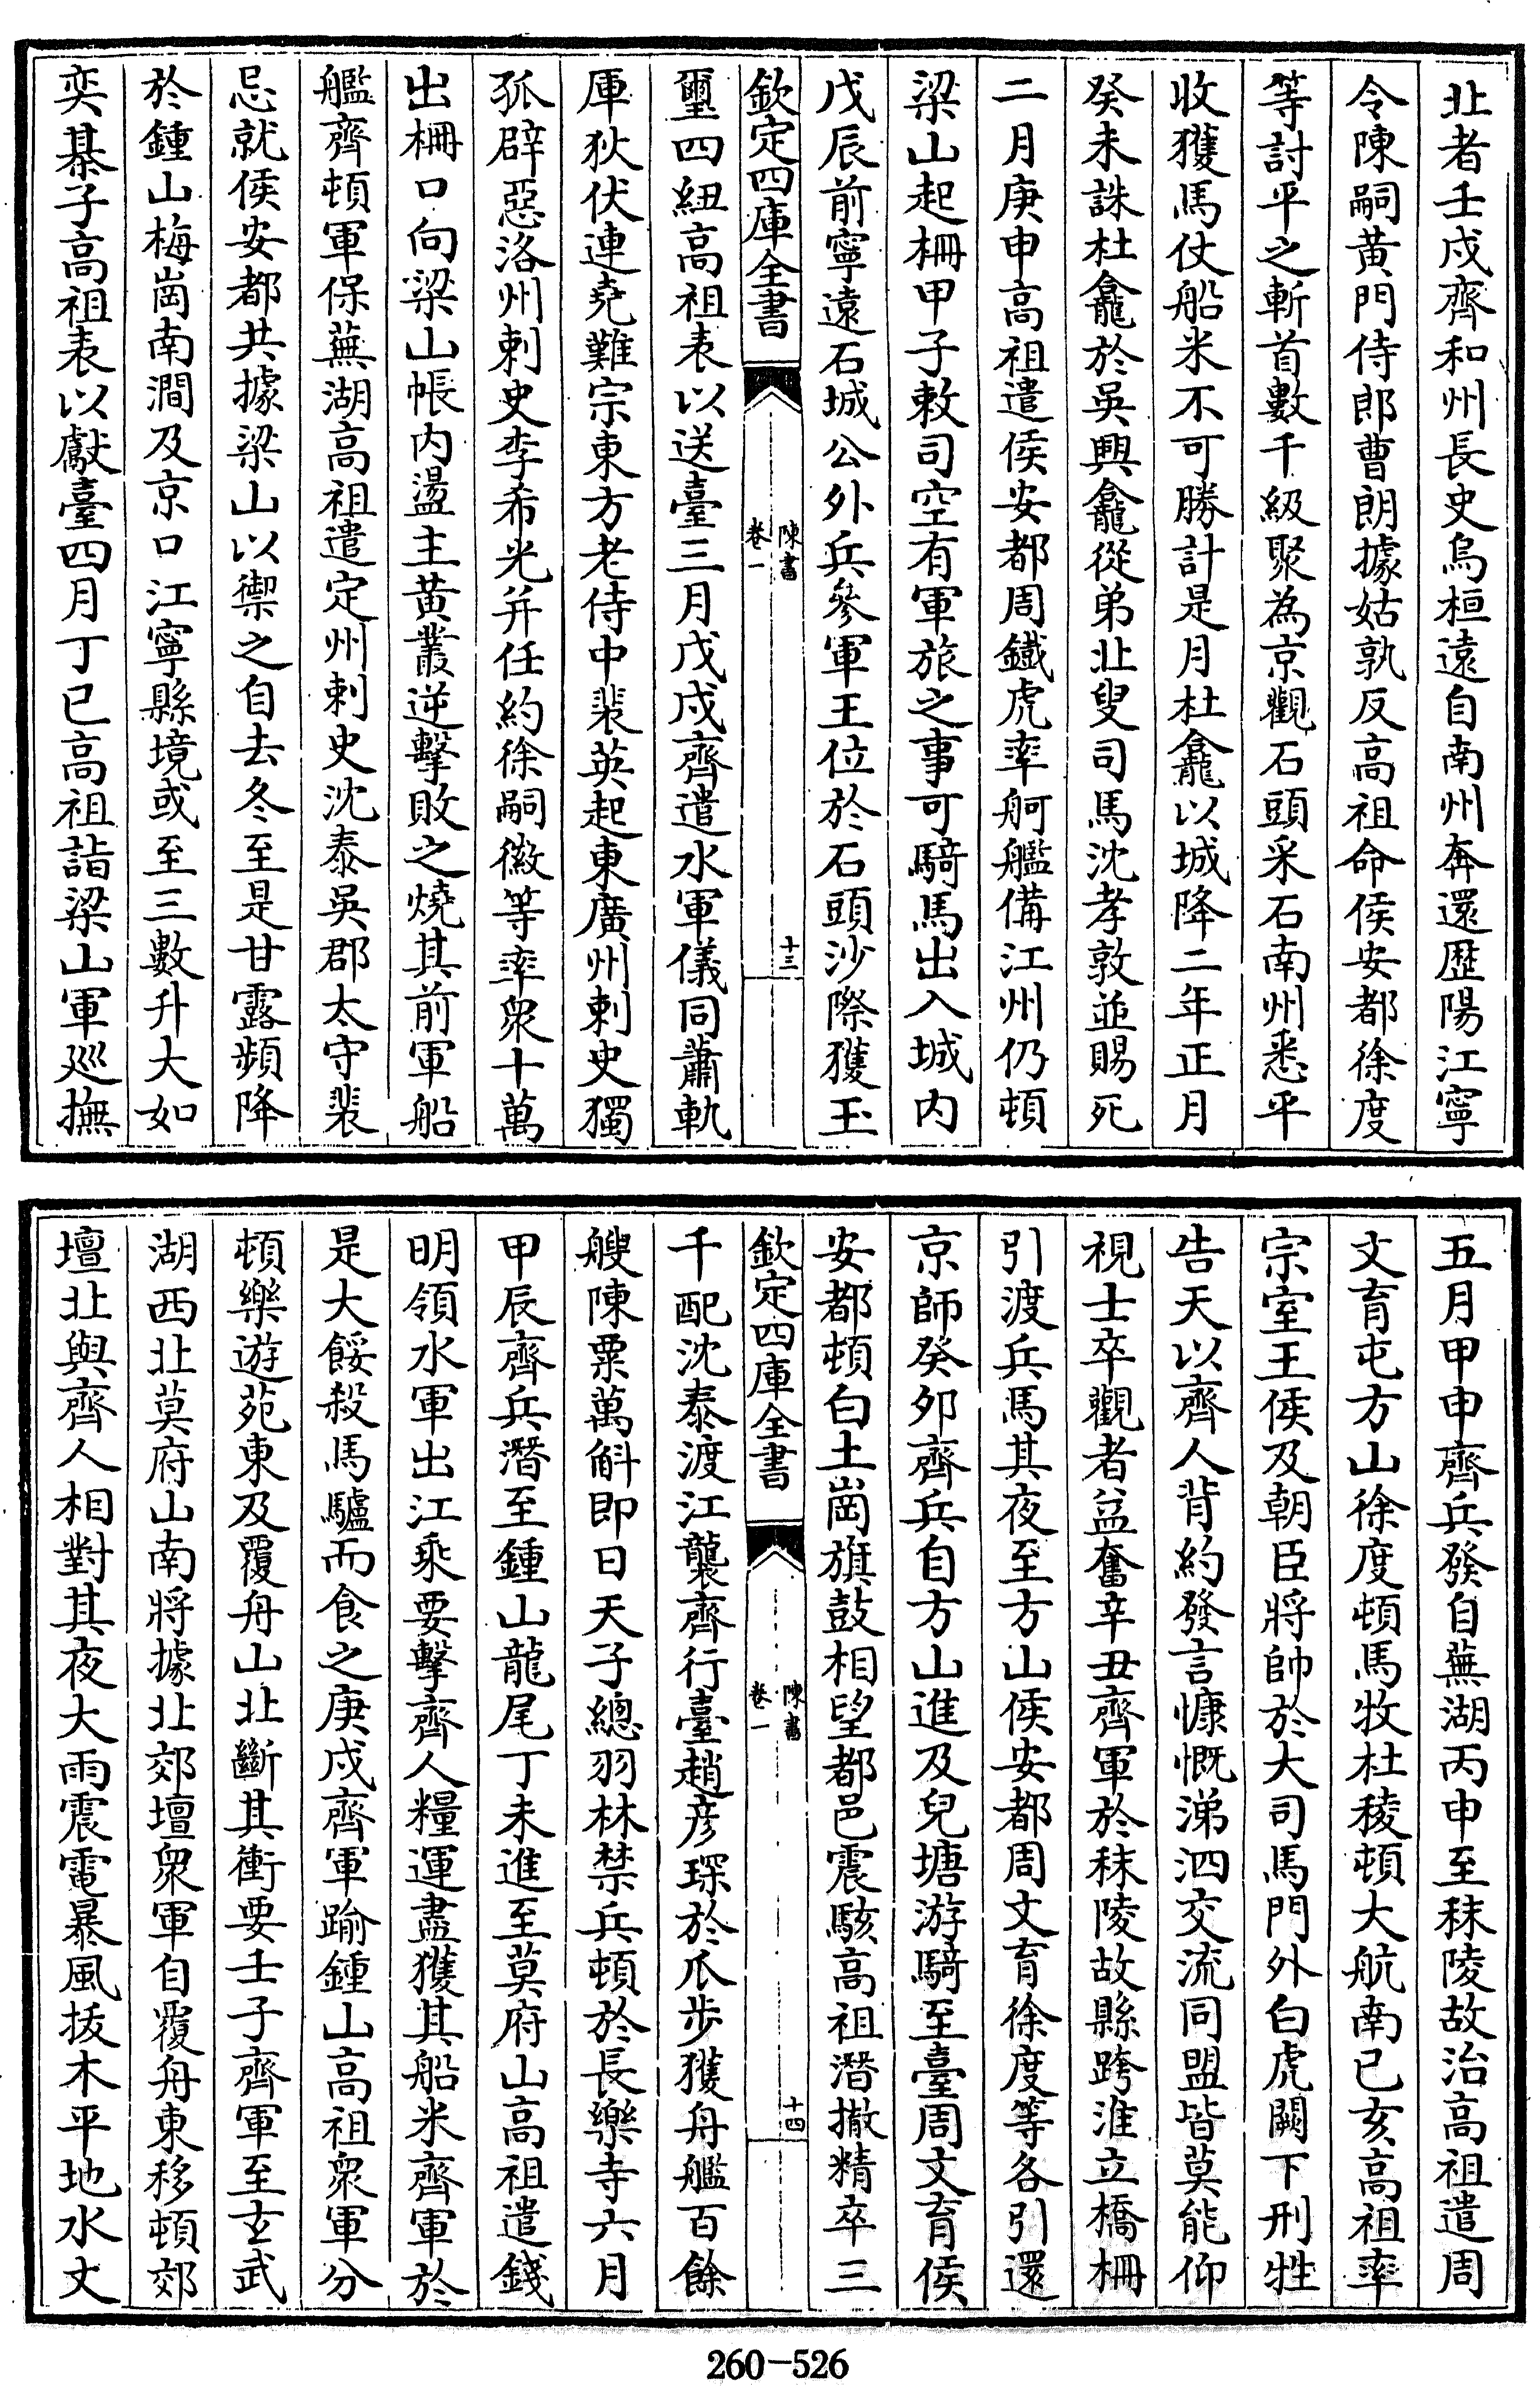 北者壬戌齊和州長史烏桓遠自南州奔還歴陽江寧
令陳嗣黄門侍郎曹朗據姑孰反高祖命侯安都徐度
等討平之斬首數千級聚為京觀石頭采石南州悉平
收獲馬仗船米不可勝計是月杜龕以城降二年正月
癸未誅杜龕於吳興龕從弟北叟司馬沈孝敦並賜死
二月庚申高祖遣侯安都周鐵虎率舸艦備江州仍頓
梁山起柵甲子敕司空有軍旅之事可騎馬出入城内
戊辰前寧遠石城公外兵參軍王位於石頭沙際獲玉
欽定四庫全書
陳書
卷一
十三
璽四紐高祖表以送臺三月戊戌齊遣水軍儀同蕭軌
厙狄伏連堯難宗東方老侍中裴英起東廣州刺史獨
孤辟惡洛州刺史李希光并任約徐嗣徽等率衆十萬
出柵口向梁山帳内盪主黄叢逆擊敗之燒其前軍船
艦齊頓軍保蕪湖高祖遣定州刺史沈泰吳郡太守裴
忌就侯安都共據梁山以禦之自去冬至是甘露頻降
於鍾山梅崗南澗及京口江寧縣境或至三數升大如
奕棊子高祖表以獻臺四月丁巳高祖詣梁山軍巡撫
五月甲申齊兵發自蕪湖丙申至秣陵故治高祖遣周
文育屯方山徐度頓馬牧杜稜頓大航南己亥高祖率
宗室王侯及朝臣將帥於大司馬門外白虎闕下刑牲
告天以齊人背約發言慷慨涕泗交流同盟皆莫能仰
視士卒觀者益奮辛丑齊軍於秣陵故縣跨淮立橋柵
引渡兵馬其夜至方山侯安都周文育徐度等各引還
京師癸卯齊兵自方山進及兒塘游騎至臺周文育侯
安都頓白土崗旗鼓相望都邑震駭高祖潛撤精卒三
欽定四庫全書
陳書
卷一
十四
千配沈泰渡江襲齊行臺趙彦琛於瓜步獲舟艦百餘
艘陳粟萬斛即日天子總羽林禁兵頓於長樂寺六月
甲辰齊兵潛至鍾山龍尾丁未進至莫府山高祖遣錢
明領水軍出江乘要擊齊人糧運盡獲其船米齊軍於
是大餒殺馬驢而食之庚戌齊軍踰鍾山高祖衆軍分
頓樂遊苑東及覆舟山北斷其衝要壬子齊軍至玄武
湖西北莫府山南將據北郊壇衆軍自覆舟東移頓郊
壇北與齊人相對其夜大雨震電暴風拔木平地水丈
260-526